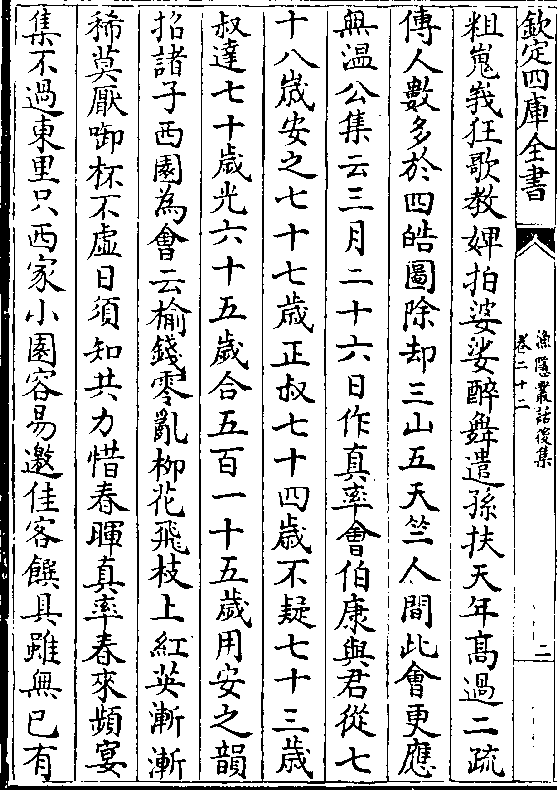 欽定四庫全書
漁隱叢話後集
卷二十二
二
粗嵬峩狂歌教婢拍婆娑醉舞遣孫扶天年髙過二疏
傳人數多於四皓圖除却三山五天竺人間此㑹更應
無温公集云三月二十六日作真率㑹伯康與君從七
十八歲安之七十七歲正叔七十四歲不疑七十三歲
叔達七十歲光六十五歲合五百一十五歲用安之韻
招諸子西園為㑹云榆錢零亂柳花飛枝上紅英漸漸
稀莫厭啣杯不虛日須知共力惜春暉真率春來頻宴
集不過東里只西家小園容易邀佳客饌具雖無已有